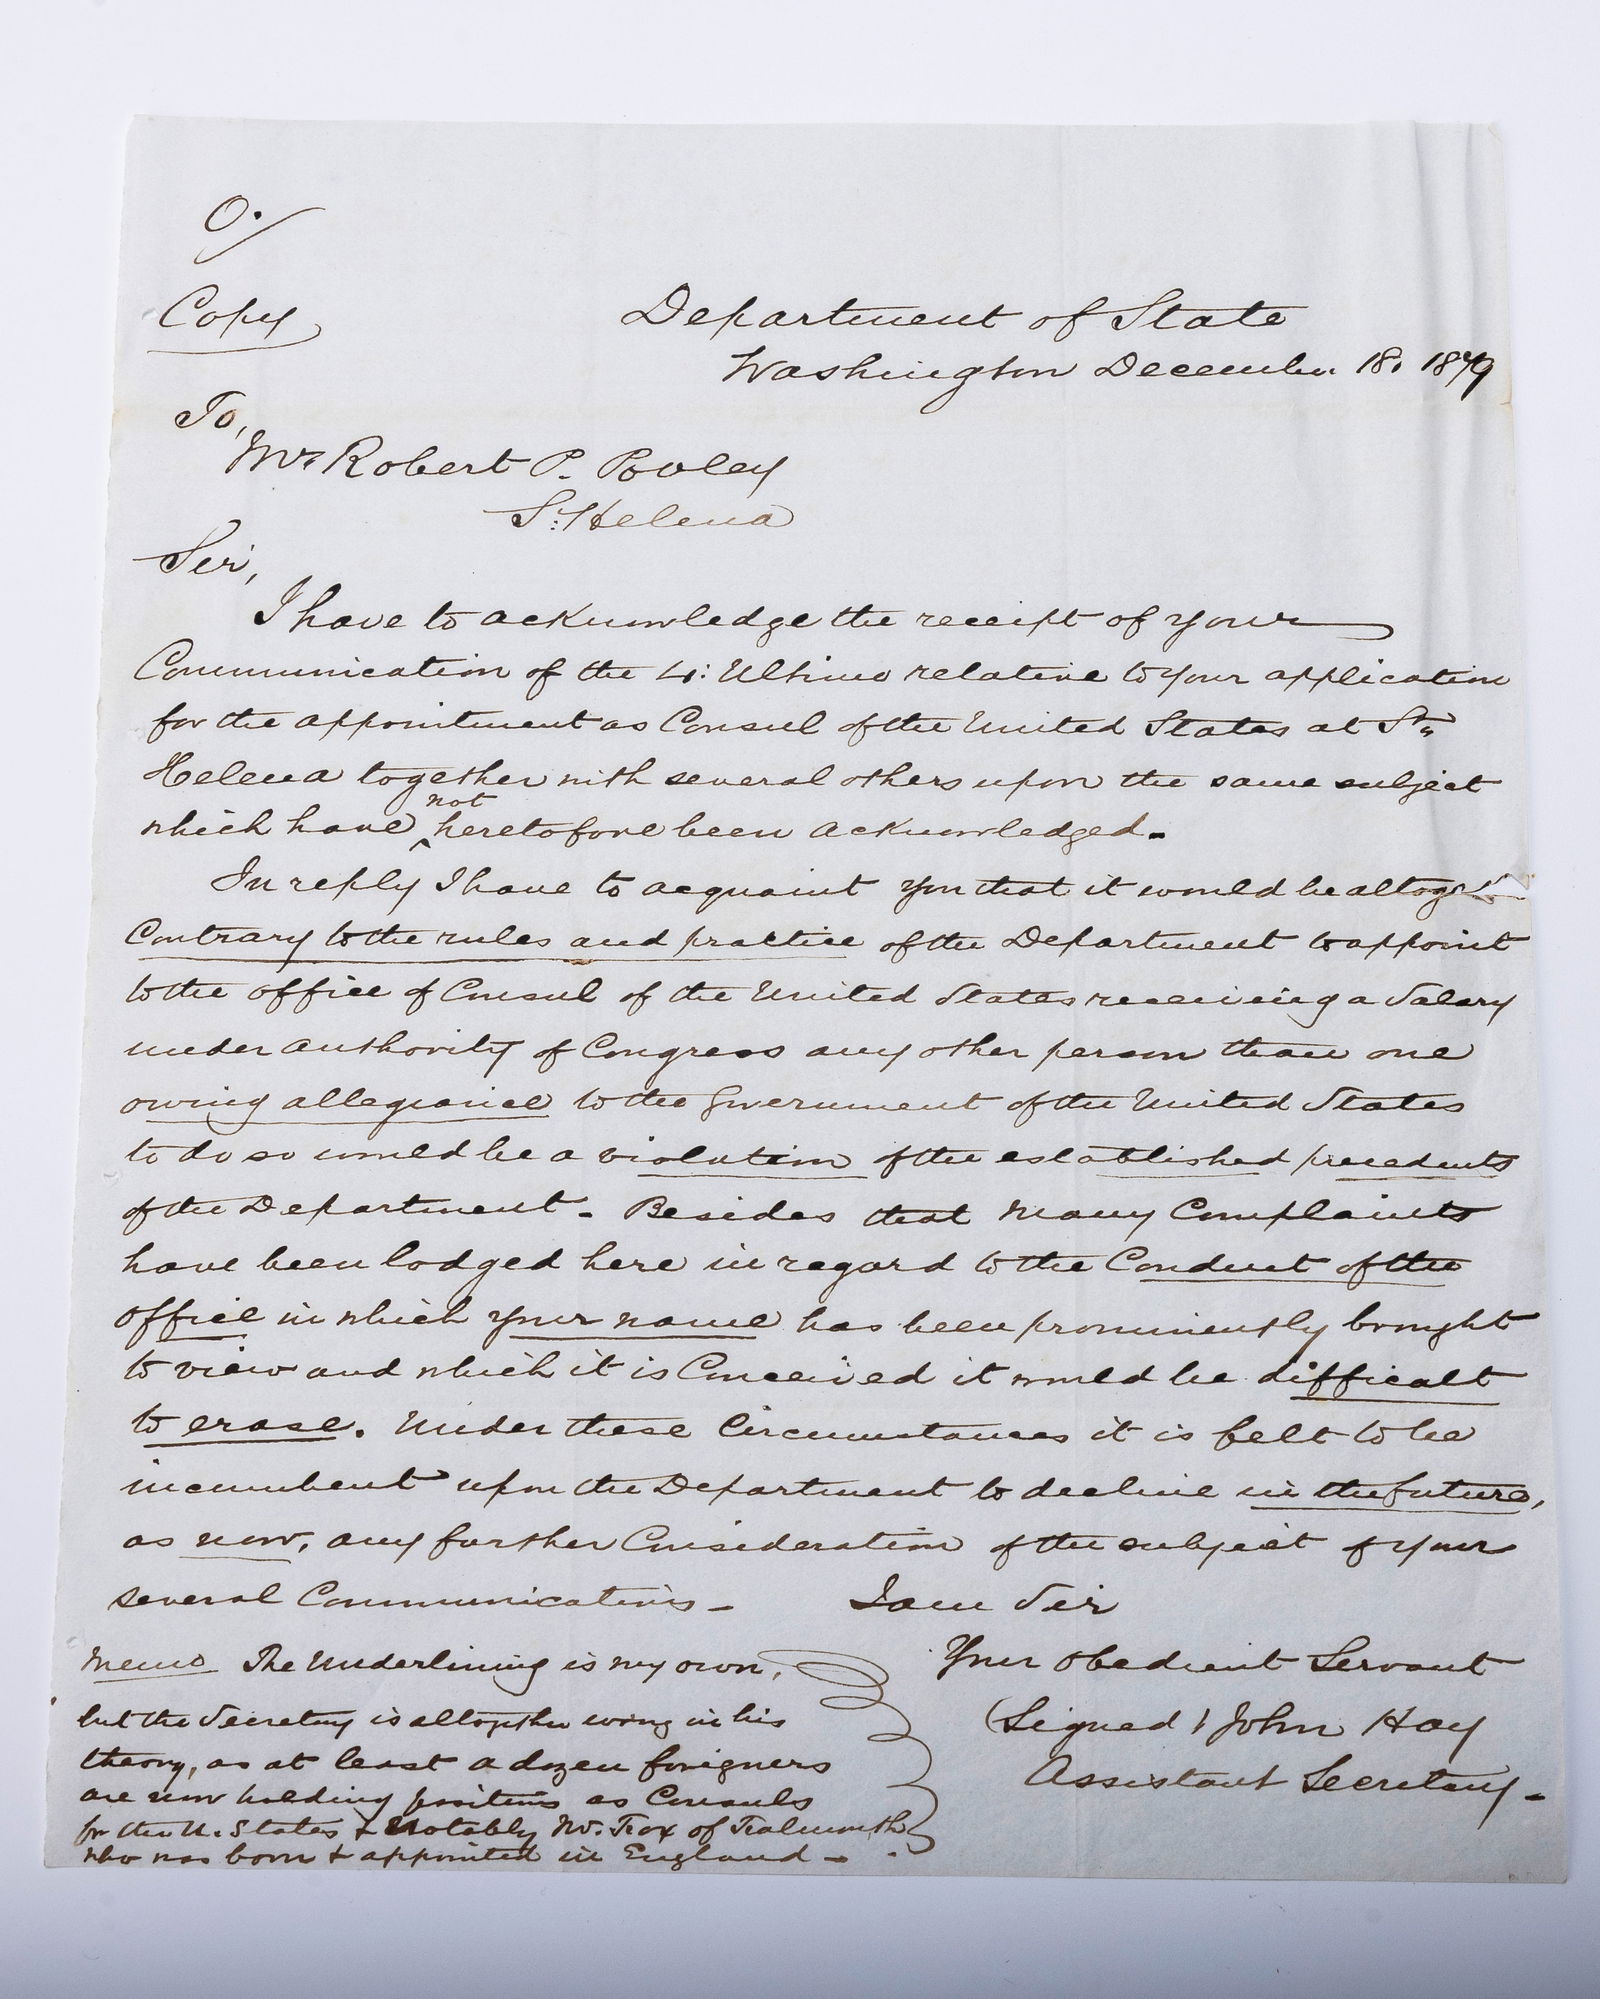 O./
Copy
Department of State
Washington December 18. 1879
To,
Mr Robert P. Pooley
St: Helena
Sir,
I have to acknowledge the receipt of your
Communication of the 4: Ultimo relative to your application
for the appointment as Consul of the United States at St"
Helena together with several others upon the same subject
which have not heretofore been acknowledged.
In reply I have to acquaint you that it would be altoge
Contrary to the rules and practice of the Department to appoint
to the office of Consul of the United States receiving a Salary
under authority of Congress any other person than one
owing allegiance to the Government of the United States
to do so would be a violation of the established precedents
of the Department. Besides that many Complaints
have been lodged here in regard to the Conduct of the
office in which your name has been prominently brought
to view and which it is Conceived it would be difficult
to erase. Under these Circumstances it is felt to be
incumbent upon the Department to decline in the future,
as now, any further Consideration of the subject of your
several Communications -
I am Sir
Your Obedient Servant
(Signed) John Hay
Assistant Secretary -
Memo The Underlining is my own,
but the Secretary is altogether wrong in his
theory, as at least a dozen foreigners
are now holding positions as Consuls
for the U. States & Notably Mr. Fox of Falmouth
who was born & appointed in England -